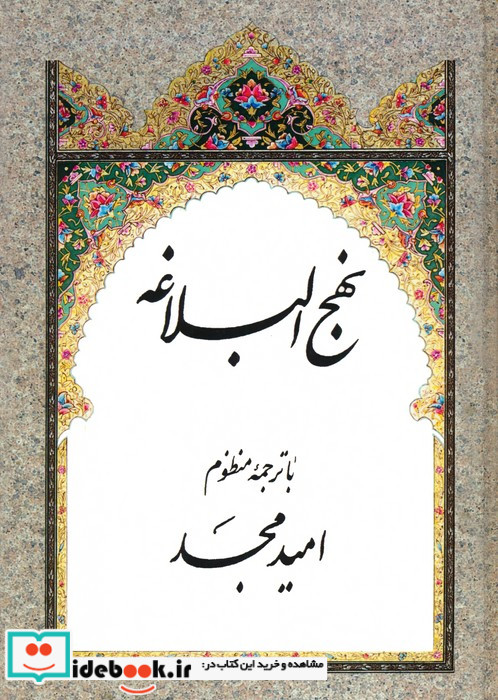 نهج البلاغه
با ترجمهٔ منظوم
امید مجد
مشاهده و خرید این کتاب در:
idebook.ir